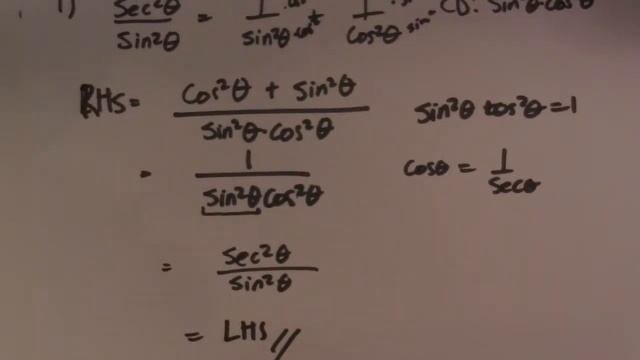 1) sec²θ / sin²θ = 1 / sin²θ 1 / cos²θ CD: sin²θ cos²θ
RHS = cos²θ + sin²θ / sin²θ · cos²θ
sin²θ + cos²θ = 1
= 1 / sin²θ cos²θ
cosθ = 1 / secθ
= sec²θ / sin²θ
= LHS //